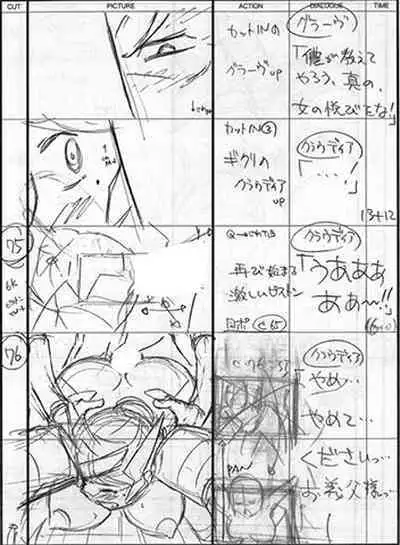 CUT
PICTURE
ACTION
DIALOGUE
TIME
カットINの
グラーヴup
グラーヴ
「僕が教えて
やろう、真の、
女の悦びをな!」
カットIN③
ギクリの
クラウディア
up
クラウディア
「…!」
13+12
75
再び始まる
激しいピストン
クラウディア
「うあああ
あぁ〜!!」
76
クラウディア
「やめっ…
やめて…
くださいっ…
お義父様っ…
PAN